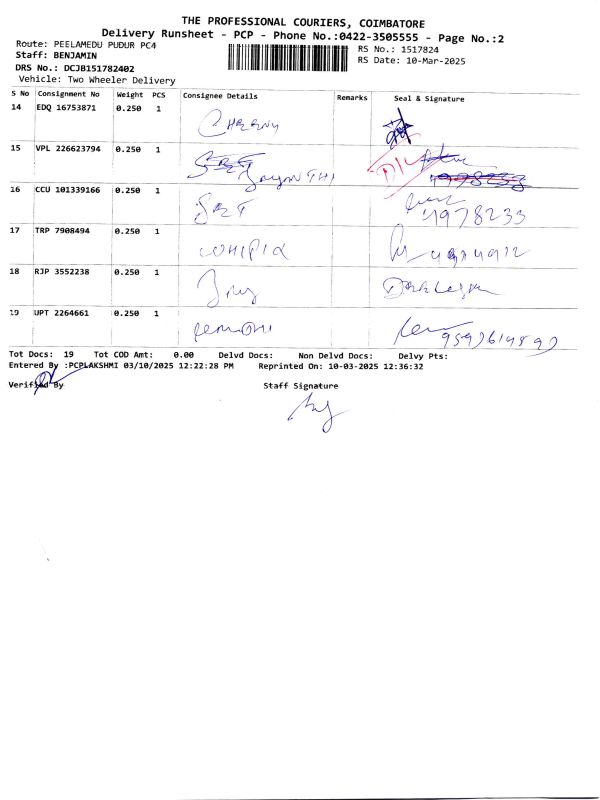 THE PROFESSIONAL COURIERS, COIMBATORE
Delivery Runsheet - PCP - Phone No.:0422-3505555 - Page No.:2
Route: PEELAMEDU PUDUR PC4
RS No.: 1517824
Staff: BENJAMIN
RS Date: 10-Mar-2025
DRS No.: DCJB151782402
Vehicle: Two Wheeler Delivery
S No Consignment No Weight PCS Consignee Details Remarks Seal & Signature
14 EDQ 16753871 0.250 1
15 VPL 226623794 0.250 1
16 CCU 101339166 0.250 1 4978233
17 TRP 7908494 0.250 1
18 RJP 3552238 0.250 1
19 UPT 2264661 0.250 1
Tot Docs: 19 Tot COD Amt: 0.00 Delvd Docs: Non Delvd Docs: Delvy Pts:
Entered By :PCPLAKSHMI 03/10/2025 12:22:28 PM Reprinted On: 10-03-2025 12:36:32
Verified By Staff Signature